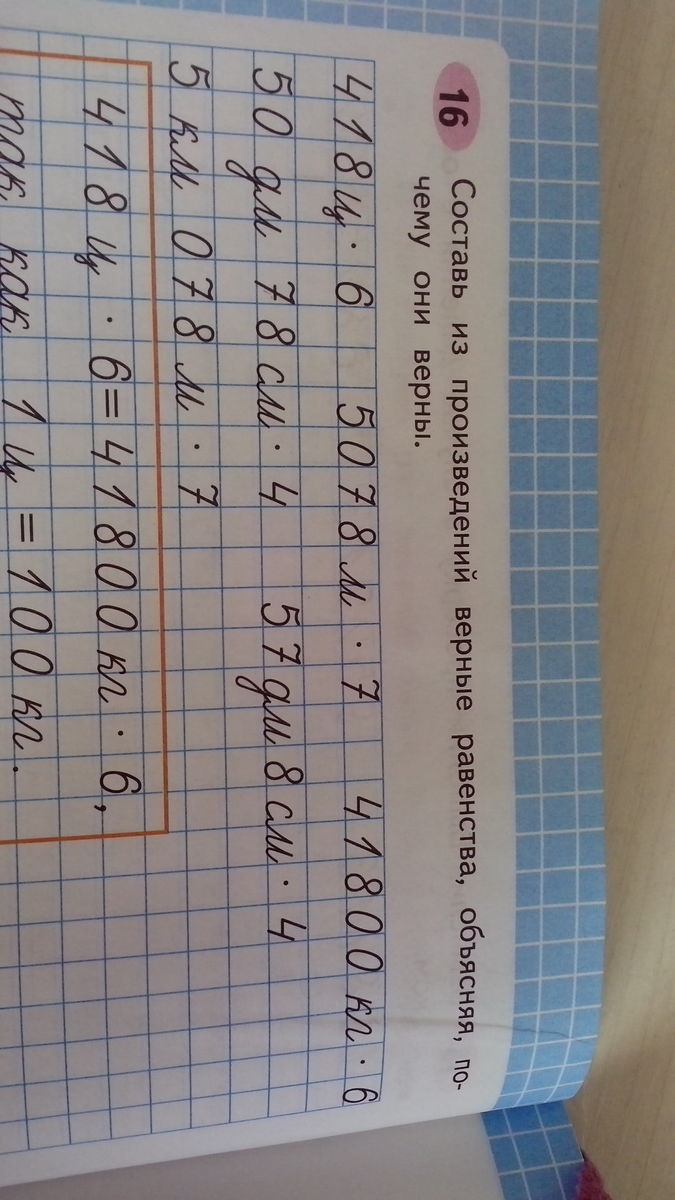 16 Составь из произведений верные равенства, объясняя, по-
чему они верны.
418 ц · 6 5078 м · 7 41800 кг · 6
50 дм 78 см · 4 57 дм 8 см · 4
5 км 078 м · 7
418 ц · 6 = 41800 кг · 6,
так как 1 ц = 100 кг.